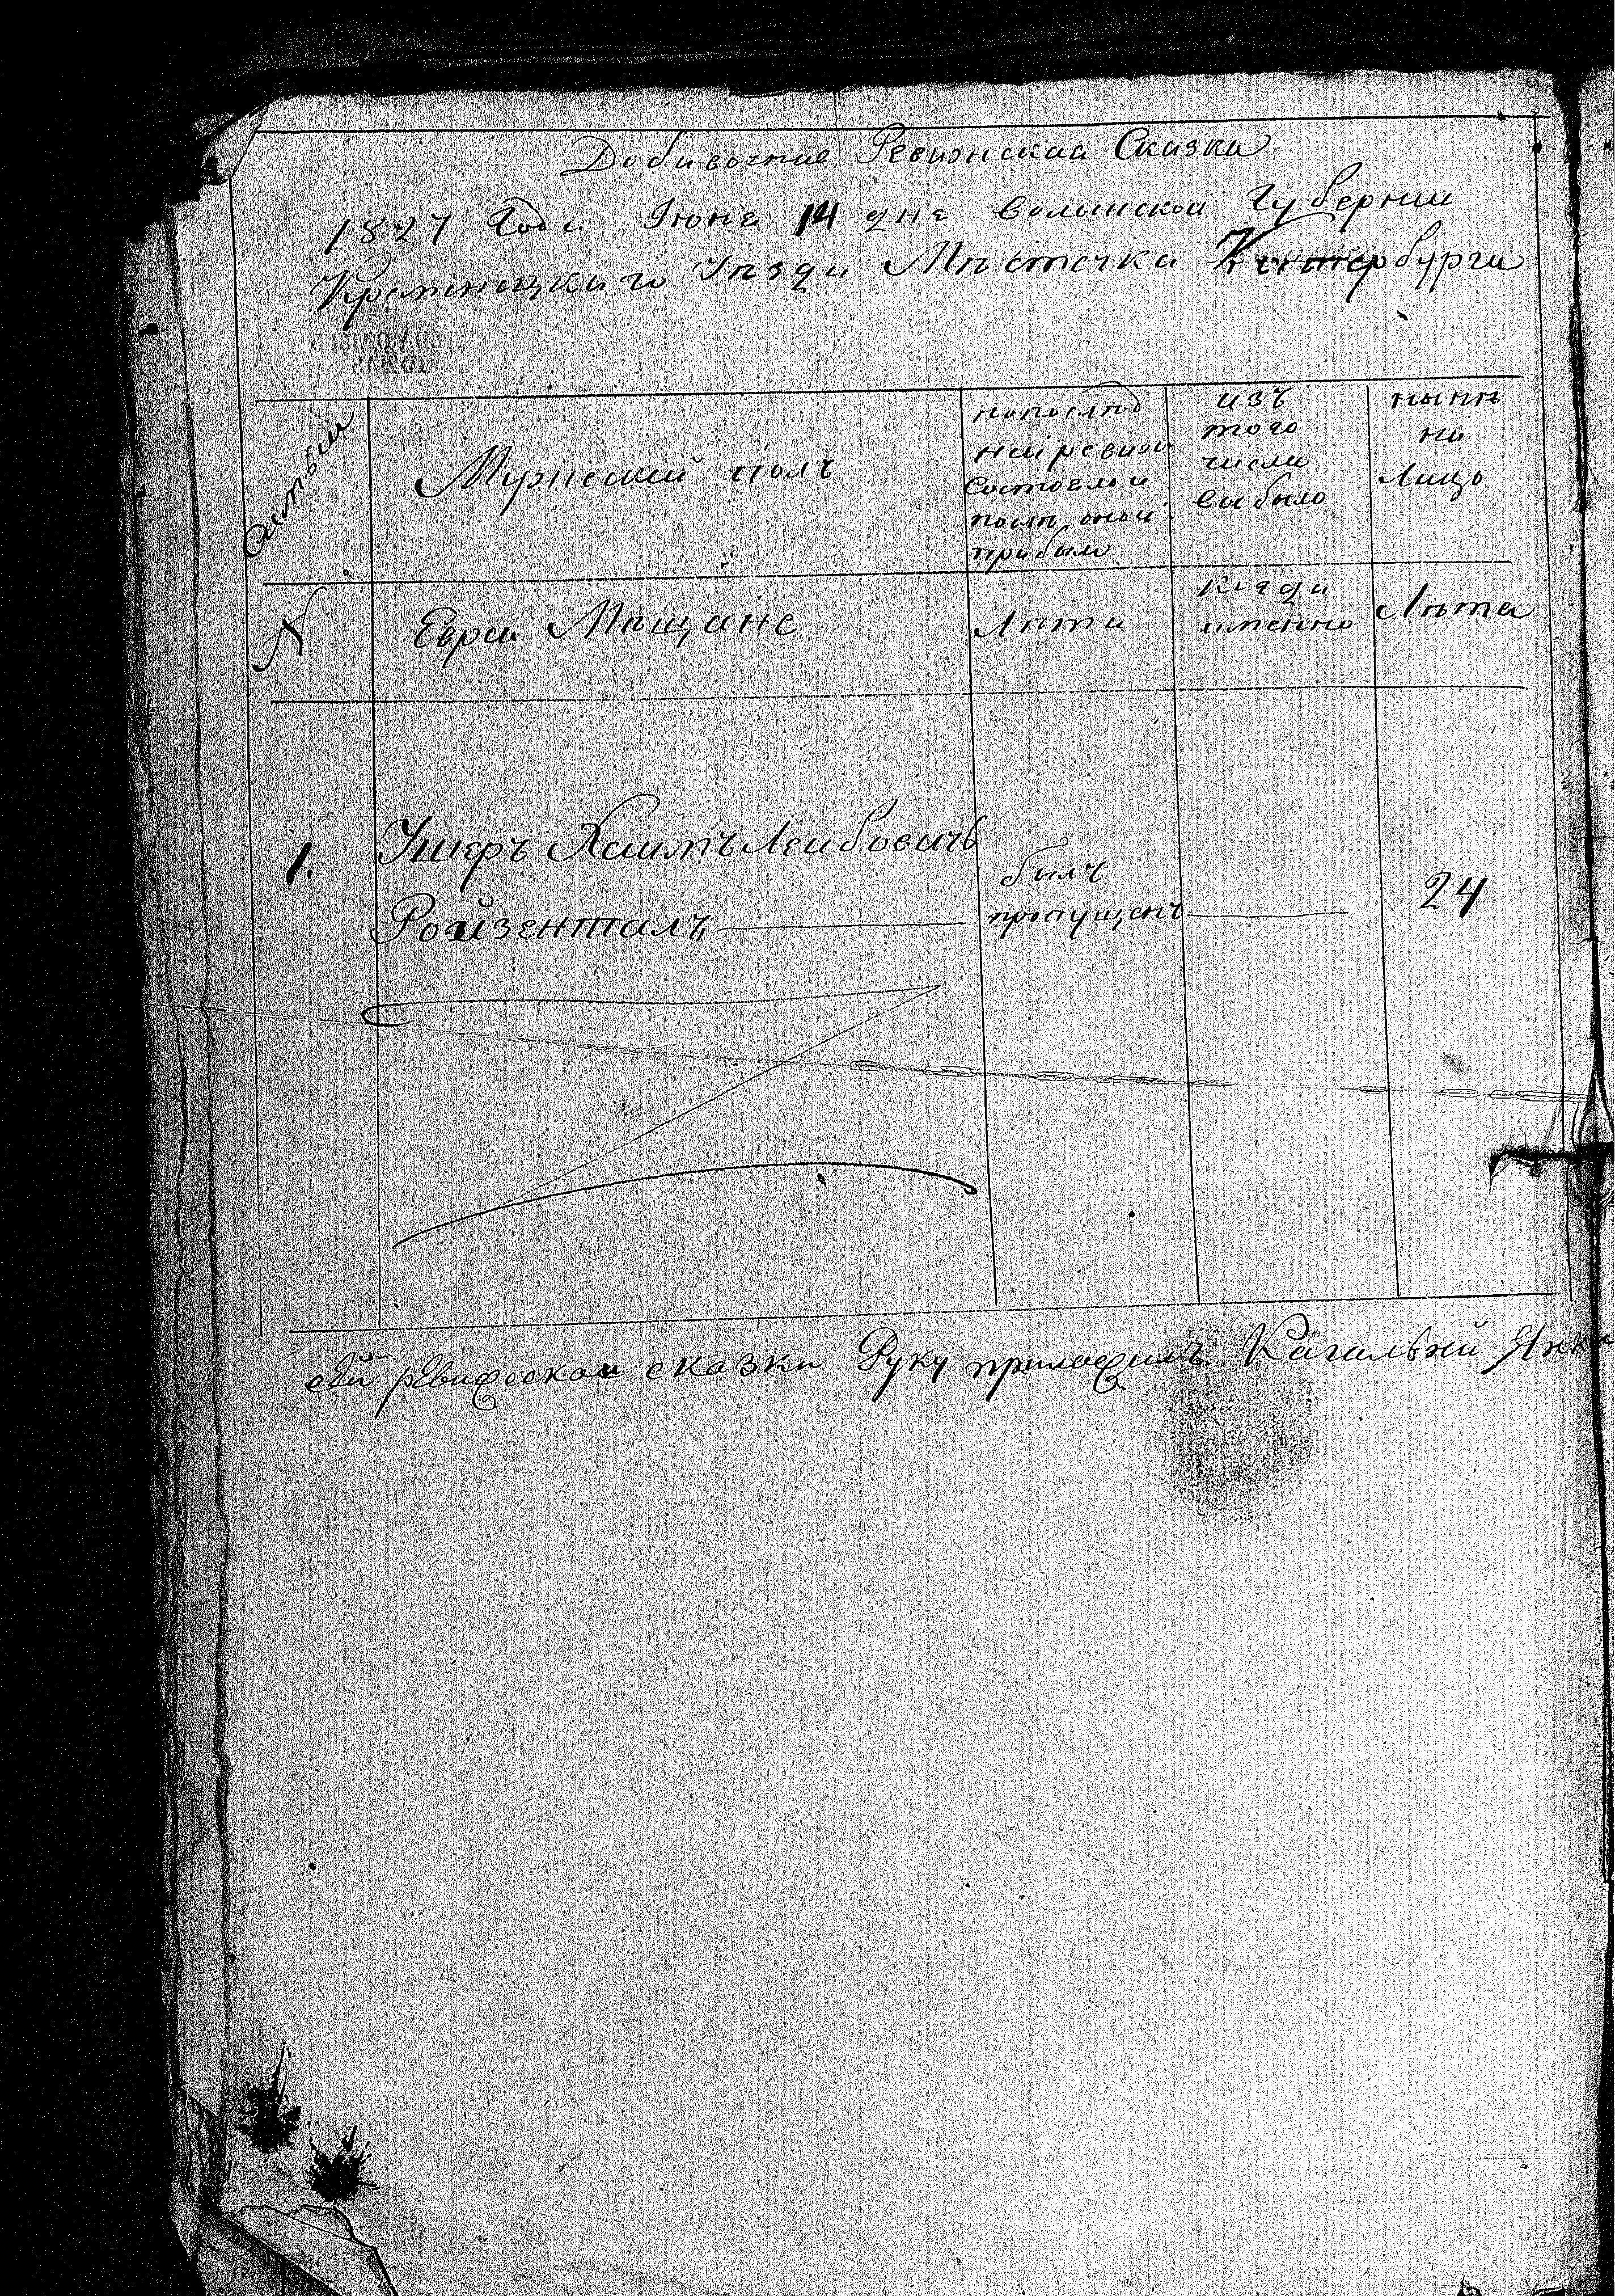 Добавочние Ревижская Сказка
1827 Года Июня 14 дня Волынской Губернии
Кременецкаго Уезда Мѣстечка Катербурга
Мужеский полъ
по послѣд
ней ревизи
состояло и
послѣ оной
прибыло
изъ
того
числа
выбыло
нынѣ
на
Лицо
№
Евреи Мещане
Лѣта
когда
именно
Лѣта
1.
Ушеръ Хаимъ Леибовичъ
Ройзенталъ
былъ
пропущенъ
24
ревизской сказки Руку приложилъ Кагальний